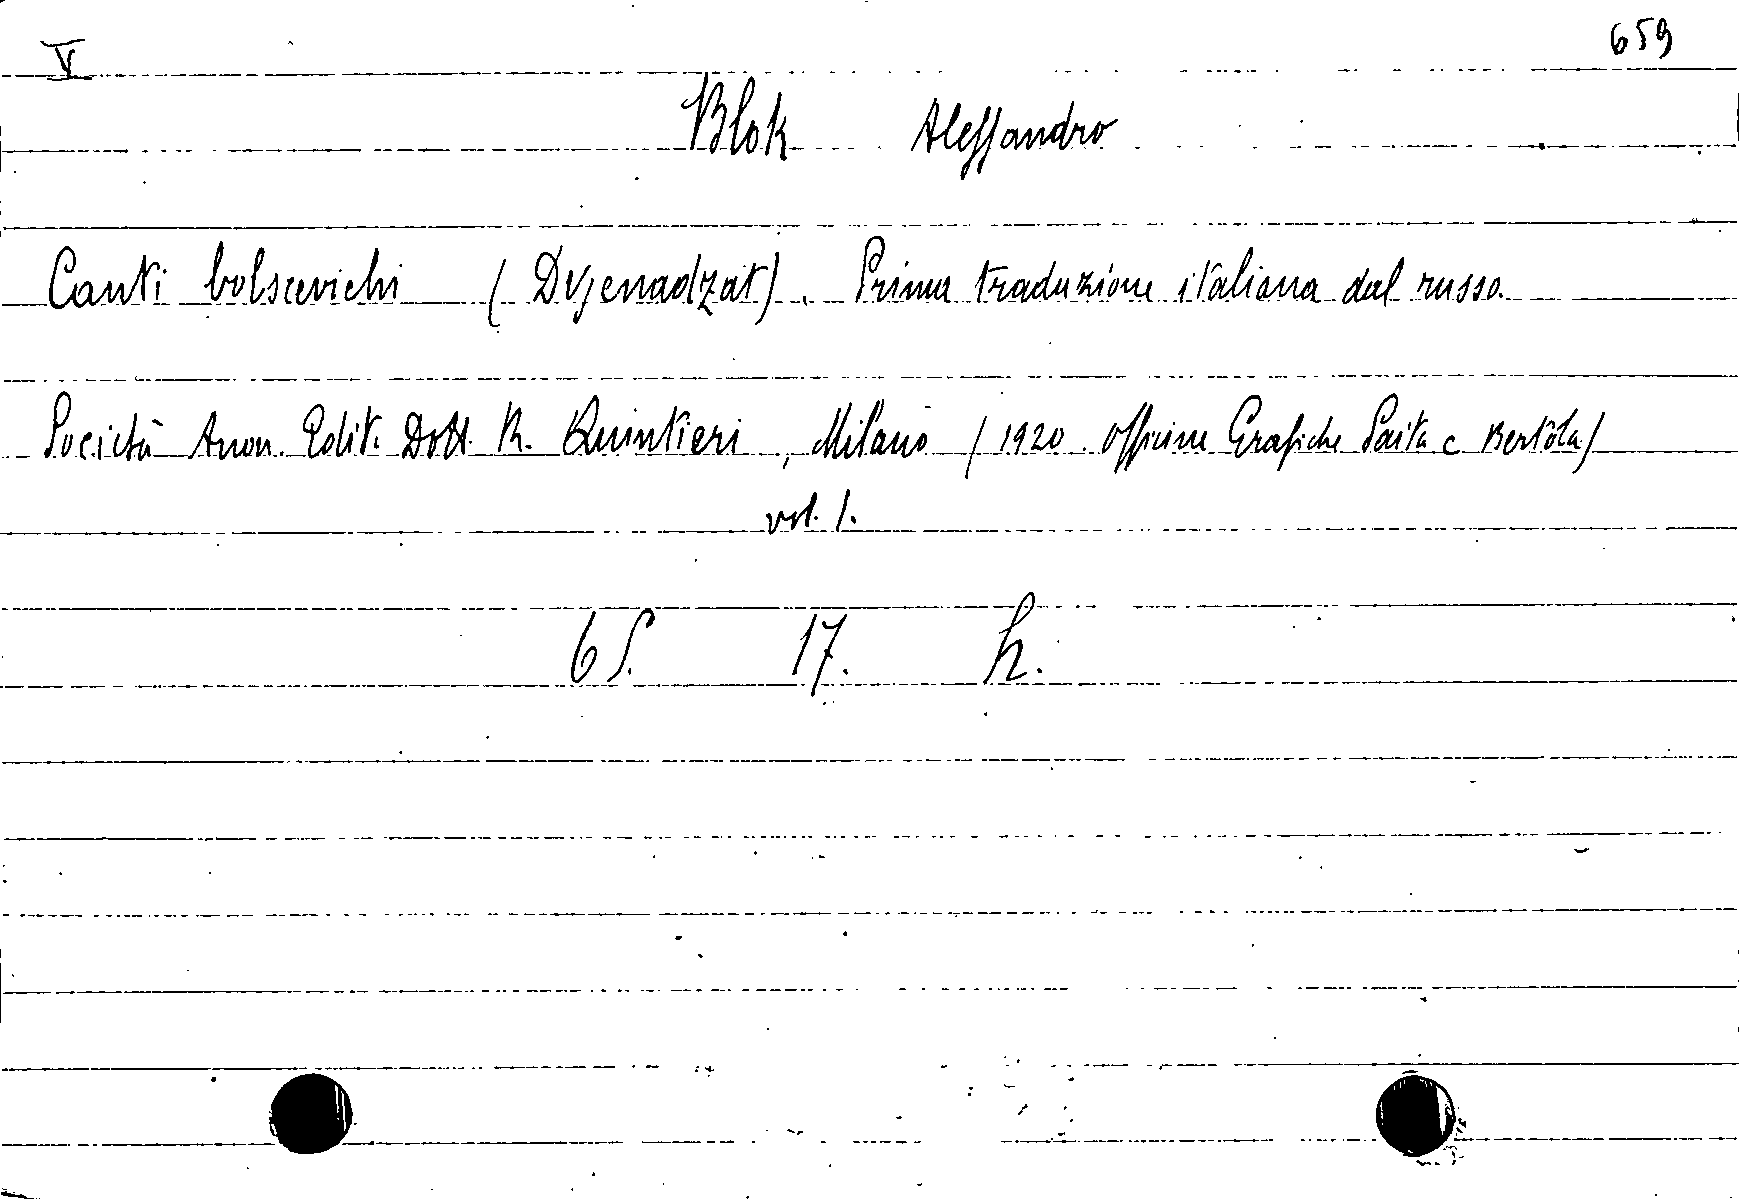 V 659
Blok Alessandro
Canti bolscevichi (Dvjenadzat). Prima traduzione italiana dal russo.
Società Anon. Edit. Dott. R. Quintieri, Milano (1920. Officine Grafiche Saita e Bertola)
vol. 1.
65. 17. h.